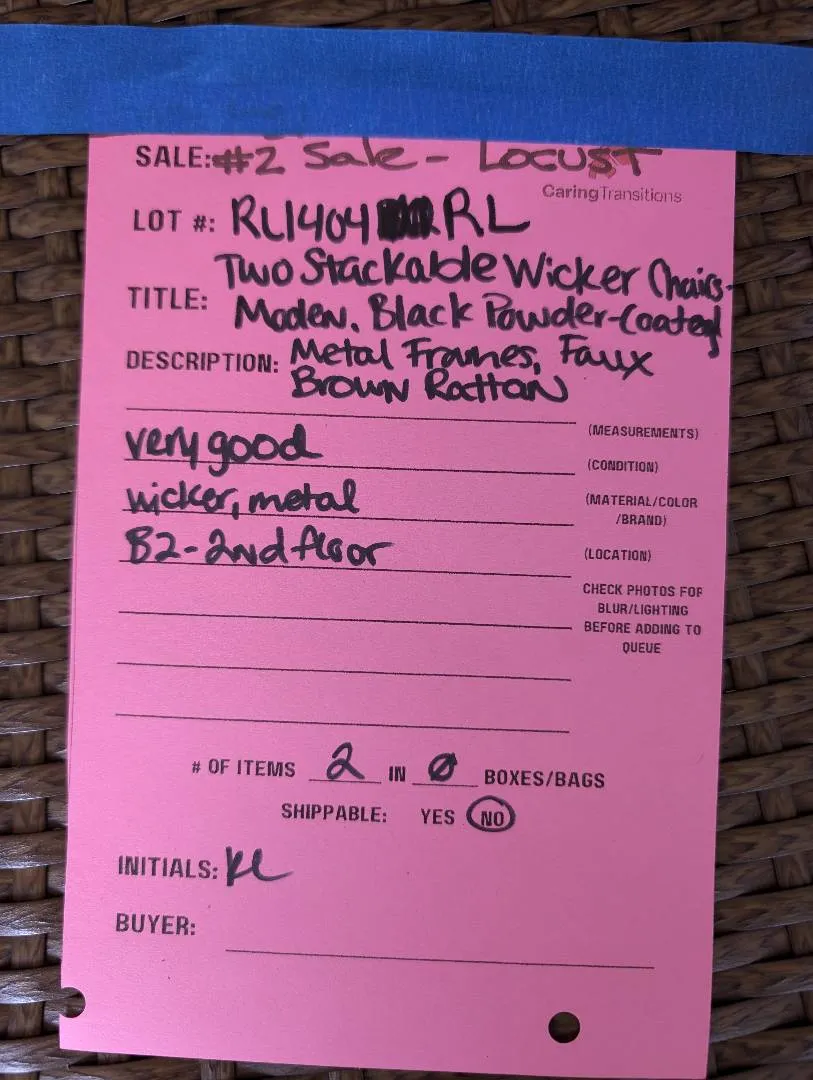 SALE: #2 Sale - Locust
CaringTransitions
LOT #: RL1404 RL
Two Stackable Wicker Chairs-
TITLE: Moden. Black Powder-Coated
DESCRIPTION: Metal Frames, Faux
Brown Rattan
(MEASUREMENTS)
very good (CONDITION)
wicker, metal (MATERIAL/COLOR
/BRAND)
B2-2nd floor (LOCATION)
CHECK PHOTOS FOR
BLUR/LIGHTING
BEFORE ADDING TO
QUEUE
# OF ITEMS 2 IN 0 BOXES/BAGS
SHIPPABLE: YES NO
INITIALS: RL
BUYER: